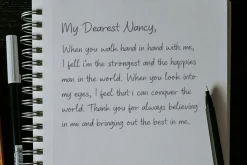 My Dearest Nancy,
When you walk hand in hand with me,
I fell i'm the strongest and the happies
man in the world. When you look into
my eyes, I feel that i can conquer the
world. Thank you for always believing
in me and bringing out the best in me.